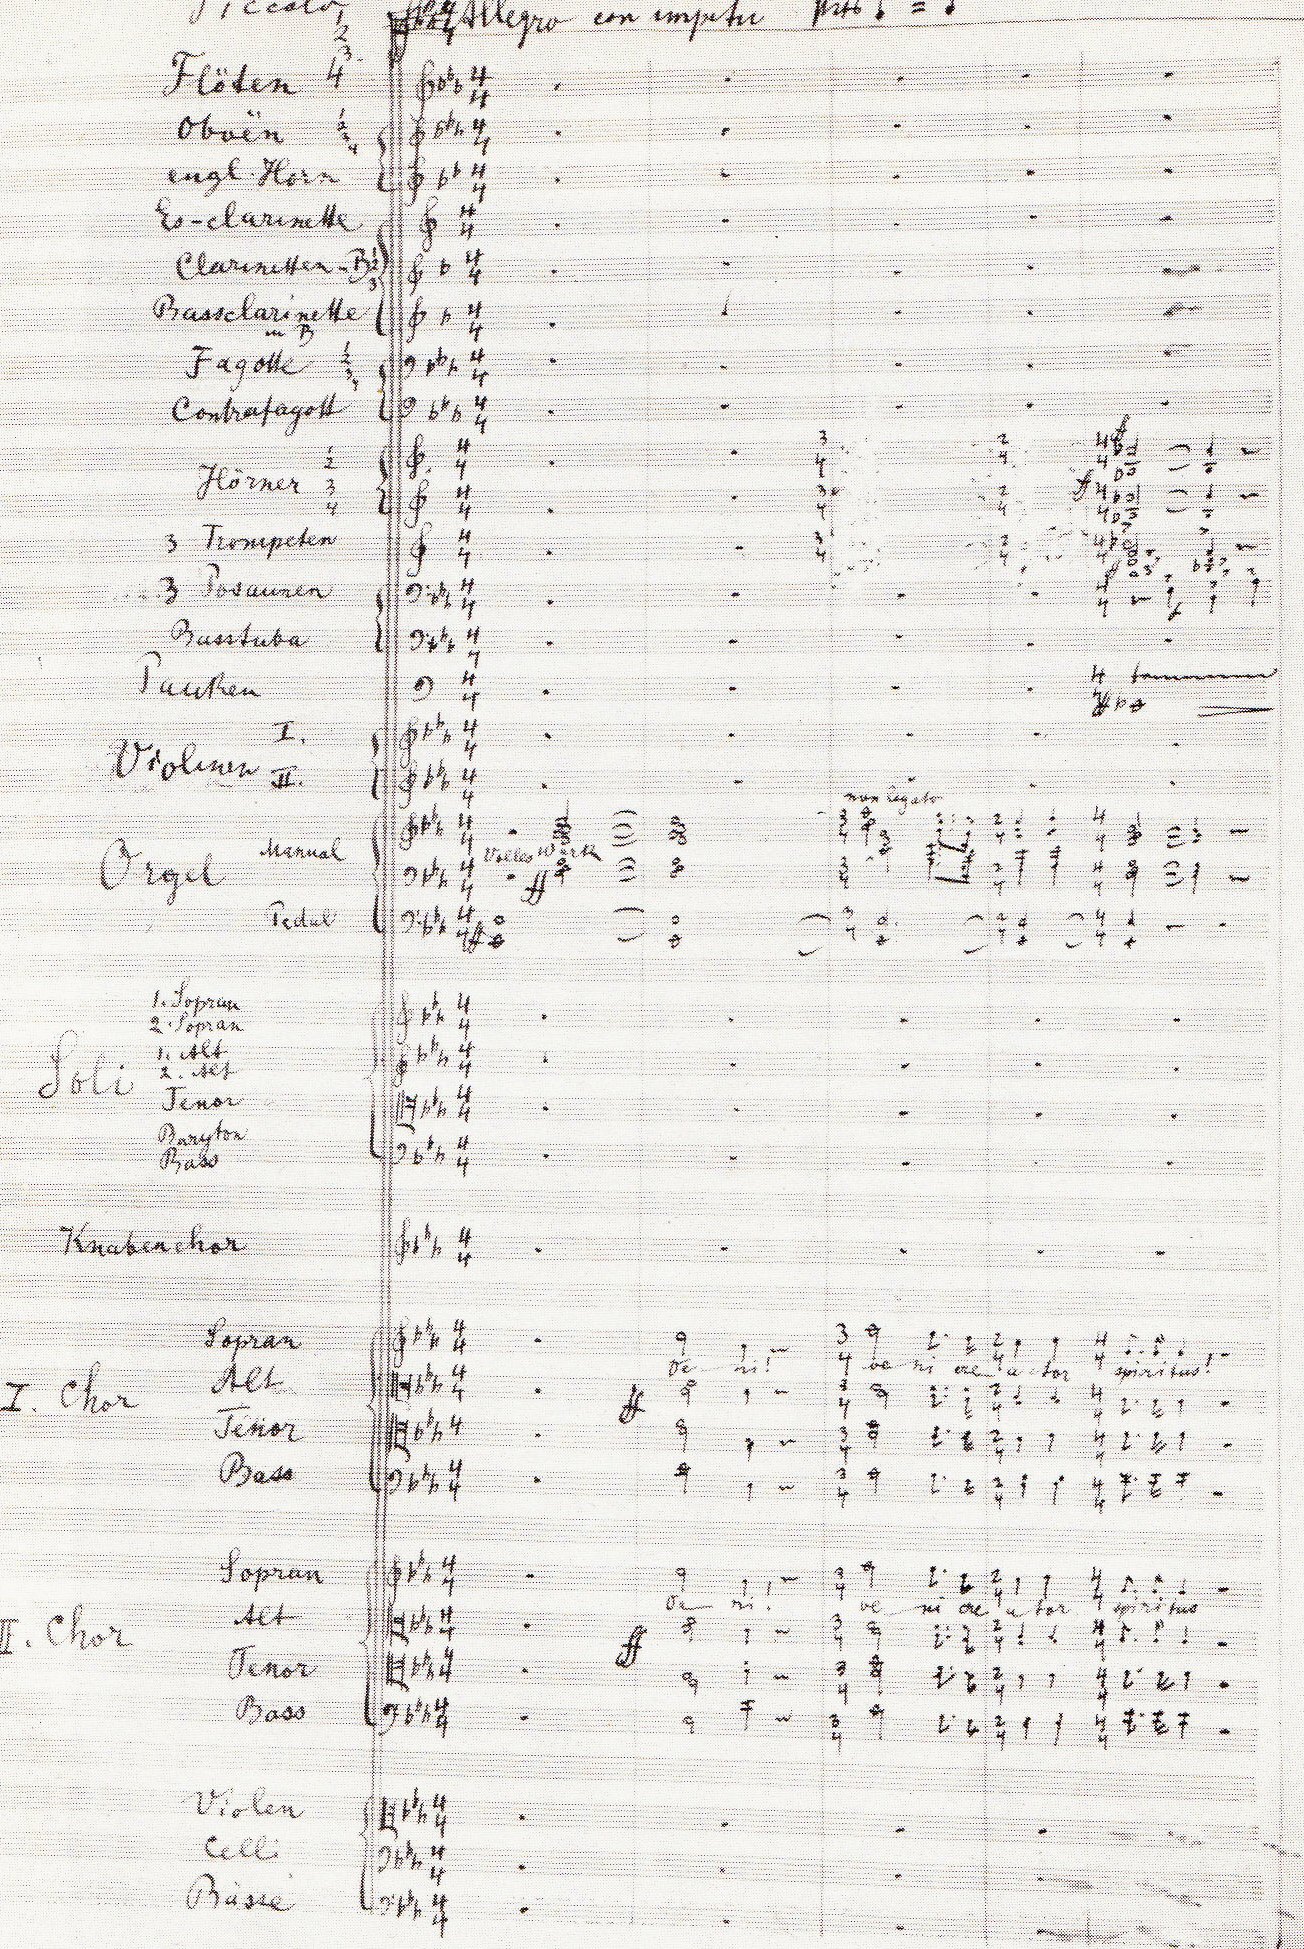 Piccolo 1 2 Allegro con impeto
Flöten 3 4
Oboën 1 2 3 4
engl. Horn
Es-clarinette
Clarinetten in B 1 2 3
Bassclarinette
in B
Fagotte 1 2 3 4
Contrafagott
Hörner 1 2 3 4
3 Trompeten
3 Posaunen
Basstuba
Pauken
Violinen I. II.
non legato
Orgel Manual Volles Werk
ff
Pedal ff
1. Sopran
2. Sopran
1. Alt
2. Alt
Soli
Tenor
Baryton
Bass
Knabenchor
Sopran
Ve- ni! ve ni cre a tor spiritus!
I. Chor Alt ff
Tenor
Bass
Sopran
Ve- ni! ve ni cre a tor spiritus
II. Chor Alt ff
Tenor
Bass
Violen
Celli
Bässe